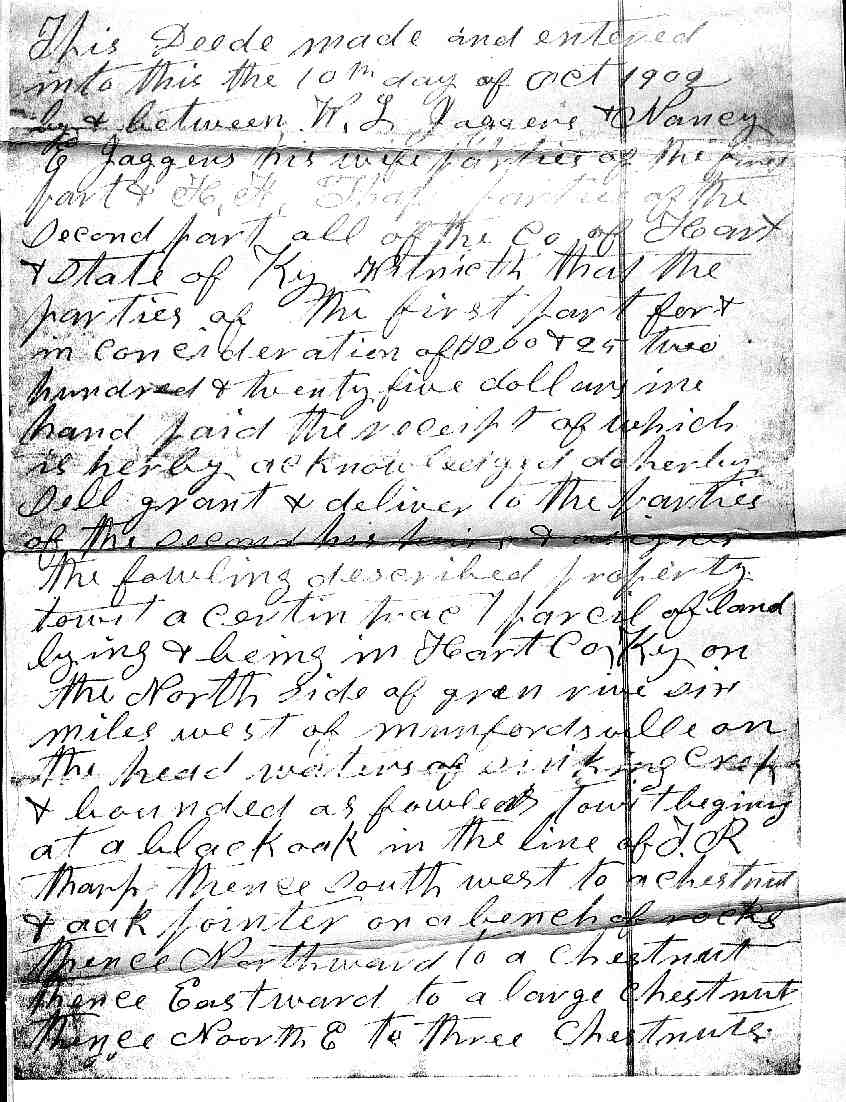 This Deede made and entered
into this the 10th day of Oct 1902
by & between W. L Jaggers & Nancy
E Jaggers his wife parties of the first
part & H. H. Tharp parties of the
second part all of the Co of Hart
& State of Ky Witnieth that the
parties of the first part for &
in concideration of $200 & 25 two
hundred & twenty five dollars ine
hand paid the receipt of which
is herby acknowledged do herby
sell grant & deliver to the parties
of the second his hairs & asignes
the fowling described property
towit a certin tract parcil of land
lying & being in Hart Co, Ky on
the North Side of gren rive six
miles west of munfordsville on
the head waters of sinking creek
& bounded as fowleds towit begining
at a black oak in the line of J. R
tharp thence South west to a chestnut
& oak pointer on a bench of rocks
thence Northward to a chestnut
thence Eastward to a large chestnut
thence Noorth E to three Chestnuts